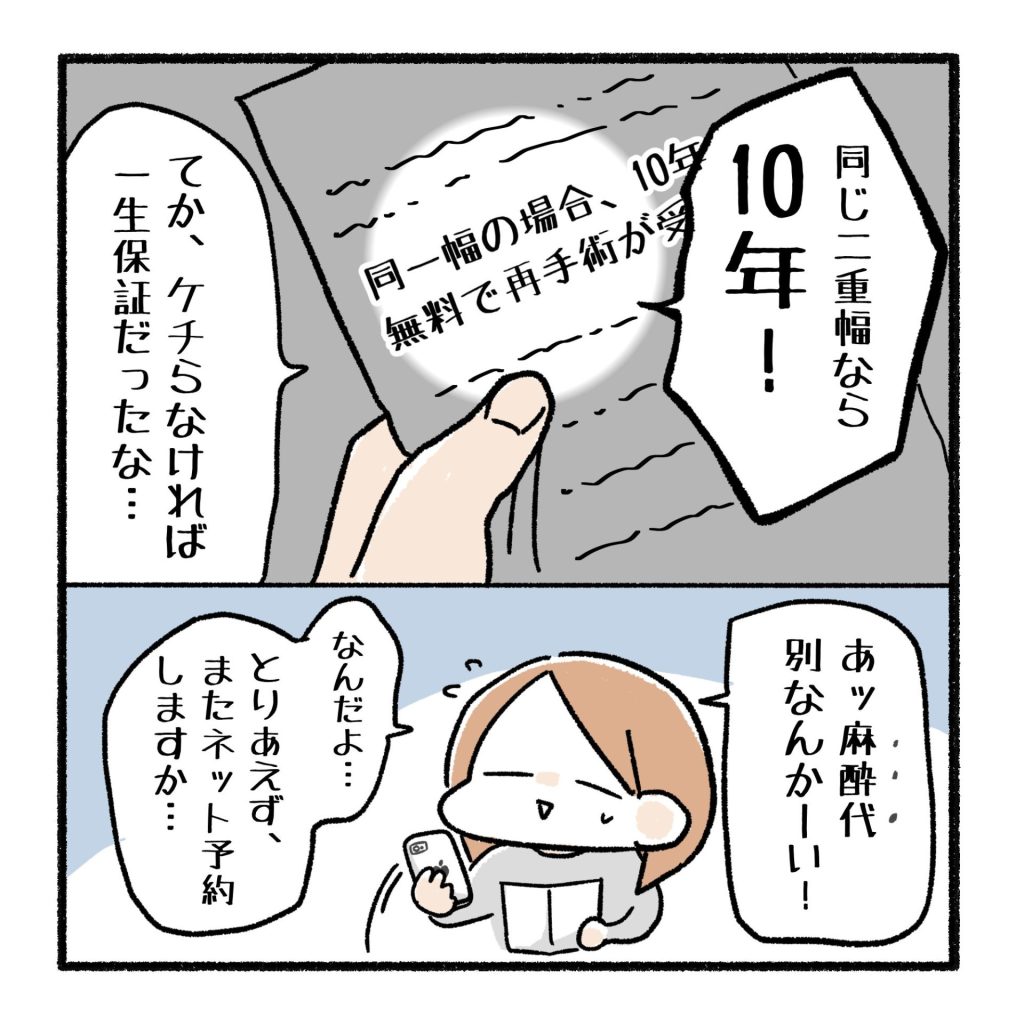 同じ二重幅なら
10年！
同一幅の場合、10年
無料で再手術が受
てか、ケチらなければ
一生保証だったな…
あッ麻酔代
別なんかーい！
なんだよ…
とりあえず、
またネット予約
しますか…